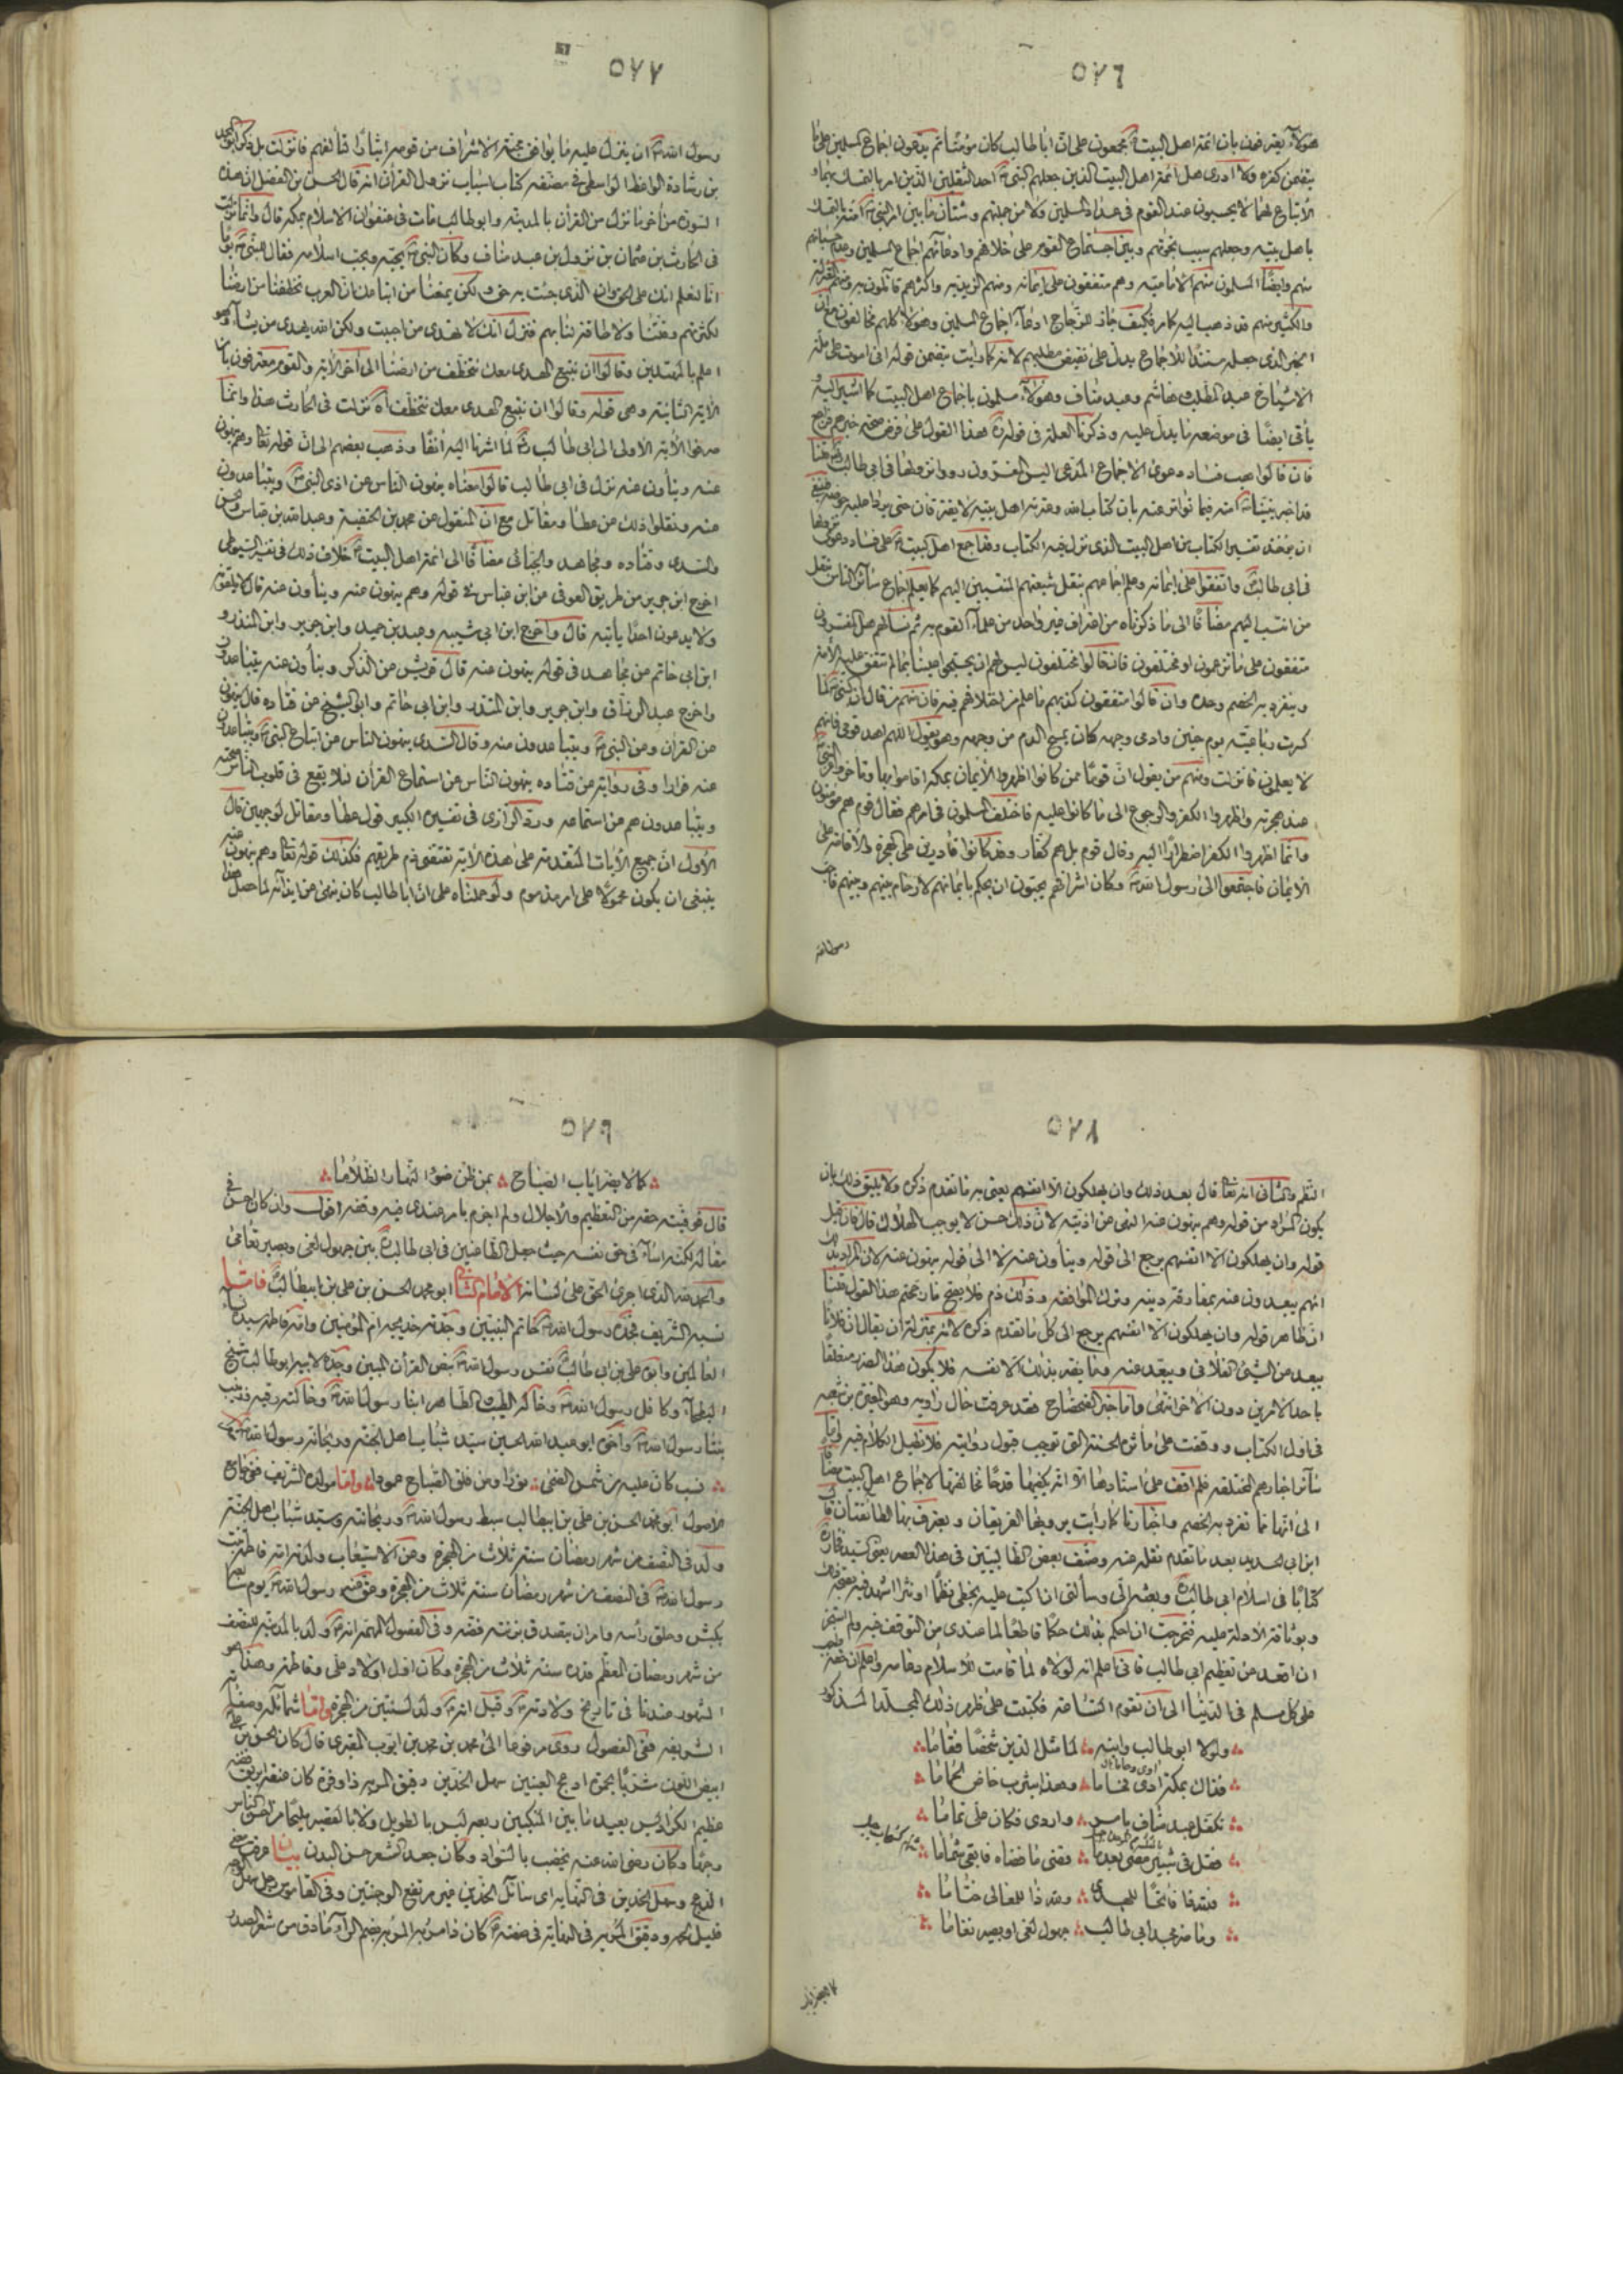 ٥٧٦
هؤلاء يعترفون بان ائمة اهل البيت مجمعون على ان ابا طالب كان مؤمنا ثم يدعون اجماع المسلمين على ما
يتضمن كفره ولا ادرى هل ائمة اهل البيت الذين جعلهم النبى احد الثقلين الذين امر بالتمسك بهما و
الاتباع لهما لا يحسبون عند القوم فى عداد المسلمين ولا من جملتهم وشتان ما بين امر النبى امته بالتمسك
باهل بيته وجعلهم سبب نجوتهم وبين اجتماع القوم على خلافهم وادعائهم اجماع المسلمين وعدم حسبانهم
منهم وايضا المسلمون منهم الامامية وهم متفقون على ايمانه ومنهم الزيدية واكثرهم قائلون به ومنهم المعتزلة
والكثير منهم قد ذهب اليه كما مر فكيف جاز للزجاج ادعاء اجماع المسلمين وهؤلاء كلهم مخالفون مع ان
الخبر الذى جعله سندا للاجماع يدل على نقيض مطلبهم لانه كما رأيت يتضمن قوله انى اموت على ملة
الاشياخ عبد المطلب وهاشم وعبد مناف وهؤلاء مسلمون باجماع اهل البيت كما اشير اليه و
يأتى ايضا فى موضعه ما يدل عليه وذكرنا العلة فى قوله هذا القول على فرض صحة خبرهم
فان قالوا هب فساد دعوى الاجماع المدعى اليس المفسرون رووا نزولها فى ابى طالب قلنا
قد اخبر نبينا امته فيما تواتر عنه بان كتاب الله وعترته اهل بيته لا يفترقان حتى يردا عليه حوضه فينبغى
ان يؤخذ تفسير الكتاب من اهل البيت الذى نزل فيه الكتاب وقد اجمع اهل البيت على فساد دعوى نزولها
فى ابى طالب واتفقوا على ايمانه وعلم اجماعهم بنقل شيعتهم المنتسبين اليهم كما يعلم اجماع سائر الناس بنقل
من انتسب اليهم مضافا الى ما ذكرناه من اعتراف غير واحد من علماء القوم به ثم نسألهم هل المفسرون
متفقون على ما تزعمون او مختلفون فان قالوا مختلفون ليس لهم ان يحتجوا علينا بما لم تتفق عليه الامة
وينفرد به الخصم وحده وان قالوا متفقون كذبهم ما علم من اختلافهم فيه فان منهم من قال ان النبى لما
كسرت رباعيته يوم حنين وادمى وجهه كان يمسح الدم من وجهه وهو يقول اللهم اهد قومى فانهم
لا يعلمون فانزلت ومنهم من يقول ان قوما ممن كانوا اظهروا الايمان بمكة اقاموا بها وتأخروا عن النبى
عند هجرته واظهروا الكفر والرجوع الى ما كانوا عليه فاختلف المسلمون فى امرهم فقال قوم هم مؤمنون
وانما اظهروا الكفر اضطرارا اليه وقال قوم بل هم كفار وقد كانوا قادرين على الهجرة والاقامة على
الايمان فاجتمعوا الى رسول الله وكان اشرافهم يحبون ان يحكم بايمانهم لارحام بينهم وبينهم فاحب
رسول الله
٥٧٧
رسول الله ان ينزل عليه ما يوافق محبة الاشراف من قومه ايثارا لتألفهم فانزلت بل ذكر ابو المجد
بن رشادة الواعظ الواسطى فى مصنفه كتاب اسباب نزول القرآن انه قال الحسن بن الفضل ان هذه
السورة من آخر ما نزل من القرآن بالمدينة وابو طالب مات فى عنفوان الاسلام بمكة قال وانما نزلت
فى الحارث بن عثمان بن نزول بن عبد مناف وكان النبى يحبه ويحب اسلامه فقال للنبى يوما
انا نعلم انك على الحق وان الذى جئت به حق ولكن يمنعنا من اتباعك ان العرب تخطفنا من ارضنا
لكثرتهم وقلتنا ولا طاقة لنا بهم فنزل انك لا تهدى من احببت ولكن الله يهدى من يشاء وهو
اعلم بالمهتدين وقالوا ان نتبع الهدى معك نتخطف من ارضنا الى آخر الآية والقوم معترفون بان
الآية الثانية وهى قوله وقالوا ان نتبع الهدى معك نتخطف اه نزلت فى الحارث هذا وانما
صرفوا الآية الاولى الى ابى طالب لما اشرنا اليه آنفا وذهب بعضهم الى ان قوله تعالى وهم ينهون
عنه وينأون عنه نزل فى ابى طالب قالوا معناه ينهون الناس عن اذى النبى ويتباعدون
عنه ونقلوا ذلك عن عطا ومقاتل مع ان المنقول عن محمد بن الحنفية وعبد الله بن عباس والحسن
والسدى وقتاده ومجاهد والجبائى مضافا الى ائمة اهل البيت خلاف ذلك فى تفسير السيوطى
اخرج ابن جرير من طريق العوفى عن ابن عباس فى قوله وهم ينهون عنه وينأون عنه قال لا يلقونه
ولا يدعون احدا يأتيه قال واخرج ابن ابى شيبه وعبد بن حميد وابن جرير وابن المنذر و
ابن ابى حاتم عن مجاهد فى قوله ينهون عنه قال قريش عن الذكر وينأون عنه يتباعدون
واخرج عبد الرزاق وابن جرير وابن المنذر وابن ابى حاتم وابو الشيخ عن قتاده قال ينهون
عن القرآن وعن النبى ويتباعدون منه وقال السدى ينهون الناس عن اتباع النبى ويتباعدون
عنه فرارا وفى رواية عن قتاده ينهون الناس عن استماع القرآن لئلا يقع فى قلوب الناس صحته
ويتباعدون هم عن استماعه ورد الرازى فى تفسيره الكبير قول عطا ومقاتل لوجهين قال
الاول ان جميع الآيات المتقدمة على هذه الآية تقتضى ذم طريقهم فكذلك قوله تعالى وهم ينهون عنه
ينبغى ان يكون محمولا على امر مذموم ولو حملناه على ان ابا طالب كان ينهى عن ايذائه لما حصل هذا
٥٧٨
النظم والثانى انه تعالى قال بعد ذلك وان يهلكون الا انفسهم يعنى به ما تقدم ذكره ولا يليق ذلك بان
يكون المراد من قوله وهم ينهون عنه النهى عن اذيته لان ذلك حسن لا يوجب الهلاك قال فان قيل
قوله وان يهلكون الا انفسهم يرجع الى قوله وينأون عنه لا الى قوله ينهون عنه لان المراد بذلك
انهم يبعدون عنه بمفارقة دينه وترك الموافقة وذلك ذم فلا يصح ما رجحتم هذا القول قلنا
ان ظاهر قوله وان يهلكون الا انفسهم يرجع الى كل ما تقدم ذكره لانه بمنزلة ان يقال ان فلانا
يبعد عن الشئ الفلانى ويبعد عنه وما يضر بذلك الا نفسه فلا يكون هذا الضرر متعلقا
باحد الامرين دون الآخر انتهى واما خبر الضحضاح فقد عرفت حال راويه وهو المغيرة بن شعبه
فى اول الكتاب ووقفت على مآثره الحسنة التى توجب قبول روايته فلا نطيل الكلام فيه واما
سائر اخبارهم المختلقة فلم اقف على اسنادها الا انه يكفيها قدحا مخالفتها لاجماع اهل البيت مضافا
الى انها مما تفرد به الخصم واخبارنا كما رأيت يرويها الفريقان ويعترف بها الطائفتان قال
ابن ابى الحديد بعد ما تقدم نقله عنه وصنف بعض الطالبيين فى هذا العصر يعنى السيد فخار
كتابا فى اسلام ابى طالب وبعثه الى وسألنى ان اكتب عليه بخطى نظما او نثرا اشهد فيه بصحة ذلك
وبوثاقة الادلة عليه فتحرجت ان احكم بذلك حكما قاطعا لما عندى من التوقف فيه ولم استجز
ان اقعد عن تعظيم ابى طالب فانى اعلم انه لولاه لما قامت للاسلام دعامة واعلم ان حقه واجب
على كل مسلم فى الدنيا الى ان تقوم الساعة فكتبت على ظهر ذلك المجلد المذكور
ولولا ابو طالب وابنه لما مثل الدين شخصا فقاما
فذاك بمكة آوى وحاما وهذا بيثرب خاض الحماما
آوى وحاما
تكفل عبد مناف بامر واودى فكان على تماما
فقل فى ثبير مضى بعد ما قضى ما قضاه فابقى شماما
فلله ذا فاتحا للهدى ولله ذا للمعالى ختاما
وما ضر مجد ابى طالب جهول لغى او بصير تعامى
كما لا يضر اياب
٥٧٩
كما لا يضر اياب الصباح بمن ظن ضوء النهار الظلاما
قال فوفيته حقه من التعظيم والاجلال ولم اجزم بامر عندى فيه وقفة اقول وان كان احسن فى
مقاله لكنه اساء فى حق نفسه حيث جعل الطاعنين فى ابى طالب بين جهول لغى وبصير تعامى
والحمد لله الذى اجرى الحق على لسانه الامام الثانى ابو محمد الحسن بن على بن ابيطالب فاما
نسبه الشريف فجده رسول الله خاتم النبيين وجدته خديجه ام المؤمنين وامه فاطمه سيدة نساء
العالمين وابوه على بن ابى طالب نفس رسول الله بنص القرآن المبين وجده لابيه ابو طالب شيخ
البطحاء وكافل رسول الله وخاله الطيب والطاهر ابنا رسول الله وخالته رقيه وزينب
بنتا رسول الله واخوه ابو عبد الله الحسين سيد شباب اهل الجنة وريحانة رسول الله
نسب كان عليه من شمس الضحى نورا ومن فلق الصباح عمودا واما مولده الشريف ففى جامع
الاصول ابو محمد الحسن بن على بن ابيطالب سبط رسول الله وريحانته وسيد شباب اهل الجنة
ولد فى النصف من شهر رمضان سنة ثلاث من الهجرة وعن الاستيعاب ولدته امه فاطمة بنت
رسول الله فى النصف من شهر رمضان سنة ثلاث من الهجرة وعق عنه رسول الله يوم سابعه
بكبش وحلق رأسه وامر ان يتصدق بزنته فضه وفى الفصول المهمه انه ولد بالمدينة للنصف
من شهر رمضان المعظم قدره سنة ثلاث من الهجرة وكان اول اولاد على وفاطمة وهذا هو
المشهور عندنا فى تاريخ ولادته وقيل انه ولد لسنتين من الهجرة واما شمائله وصفاته
الشريفه ففى الفصول روى مرفوعا الى محمد بن محمد بن ايوب المغيرى قال كان الحسن بن على
ابيض اللون مشربا بحمرة ادعج العينين سهل الخدين دقيق المسربه ذا وفرة كان عنقه ابريق فضه
عظيم الكراديس بعيد ما بين المنكبين ربعه ليس بالطويل ولا بالقصير مليحا من احسن الناس
وجها وكان رضى الله عنه يخضب بالسواد وكان جعد الشعر حسن البدن بيان عرفت معنى
الدعج وسهل الخدين فى النهايه اى سائل الخدين غير مرتفع الوجنتين وفى القاموس رجل سهل الوجه
قليل لحمه ودقيق المسربه فى النهاية فى صفته كان ذا مسربه المسربه بضم الراء ما دق من شعر الصدر